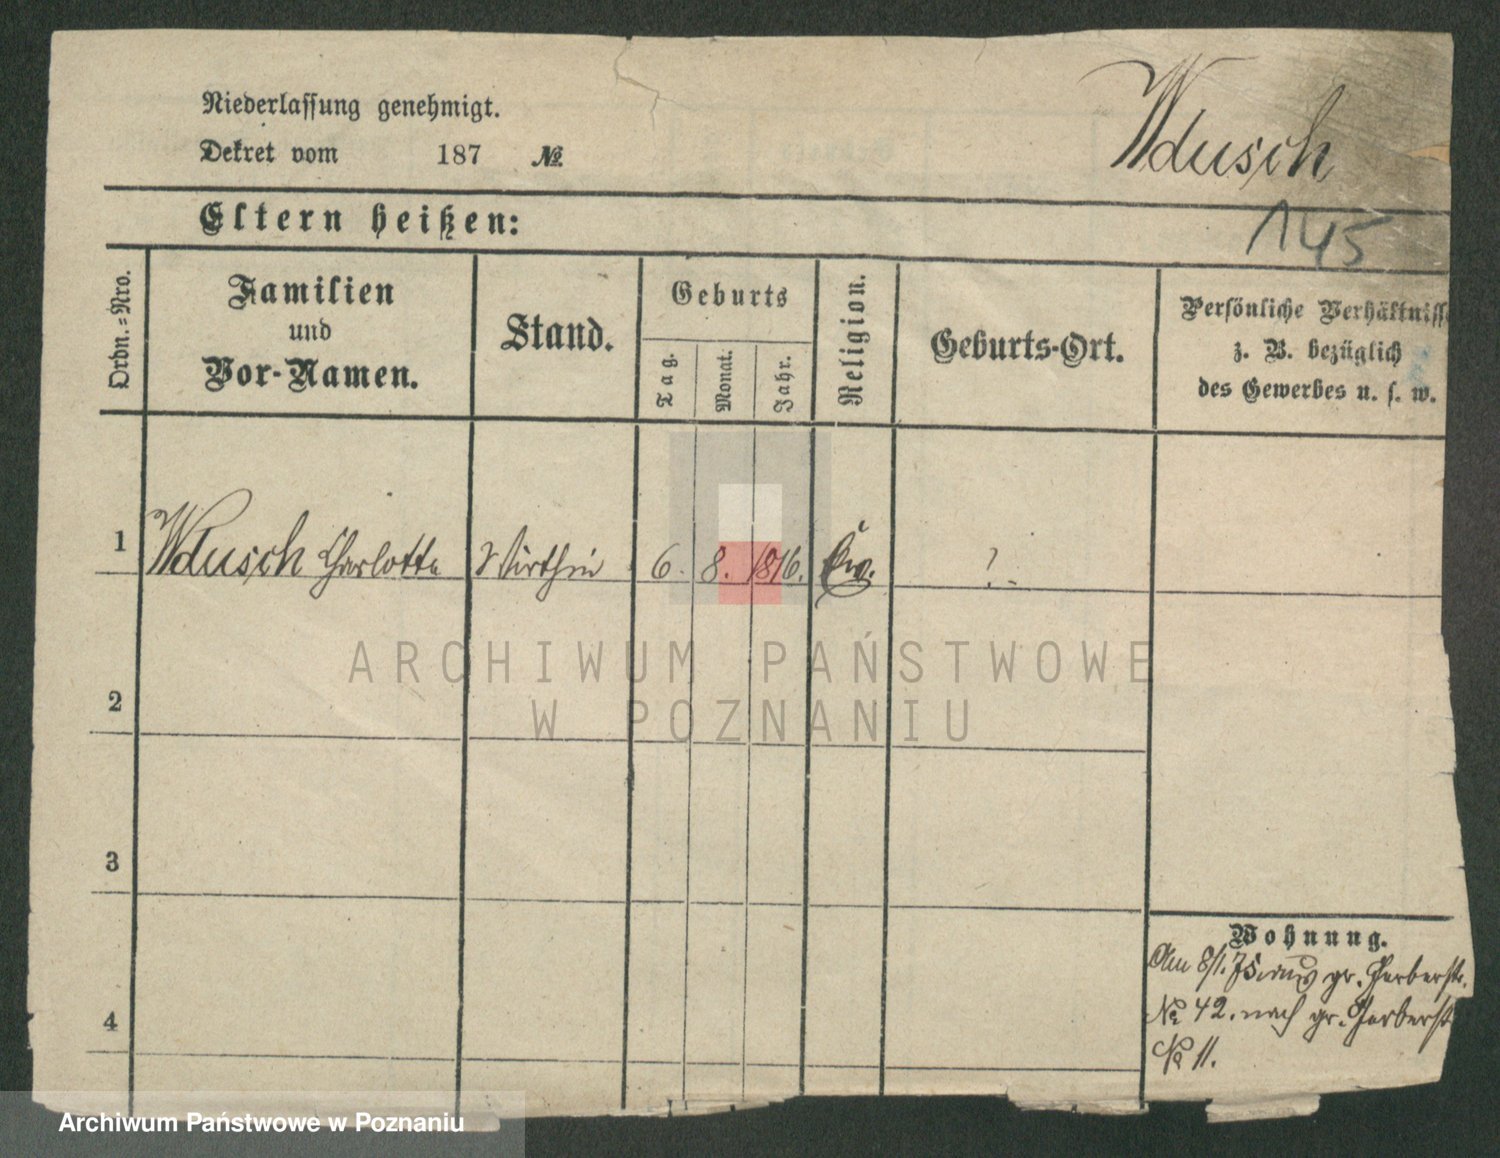 Niederlassung genehmigt.
Dekret vom 187 №
Wdusch
145
Eltern heißen:
Ordn.=Nro.
Familien
und
Vor-Namen.
Stand.
Geburts
Tag.
Monat.
Jahr.
Religion.
Geburts-Ort.
Persönliche Verhältnisse
z. B. bezüglich
des Gewerbes u. s. w.
1 Wdusch Charlotte Wirthin 6. 8. 1816. Ev. ?
2
3
4
Wohnung.
Am 8/1. 75 aus gr. Gerberstr.
№ 42. nach gr. Gerberstr
№ 11.
ARCHIWUM PAŃSTWOWE
W POZNANIU
Archiwum Państwowe w Poznaniu